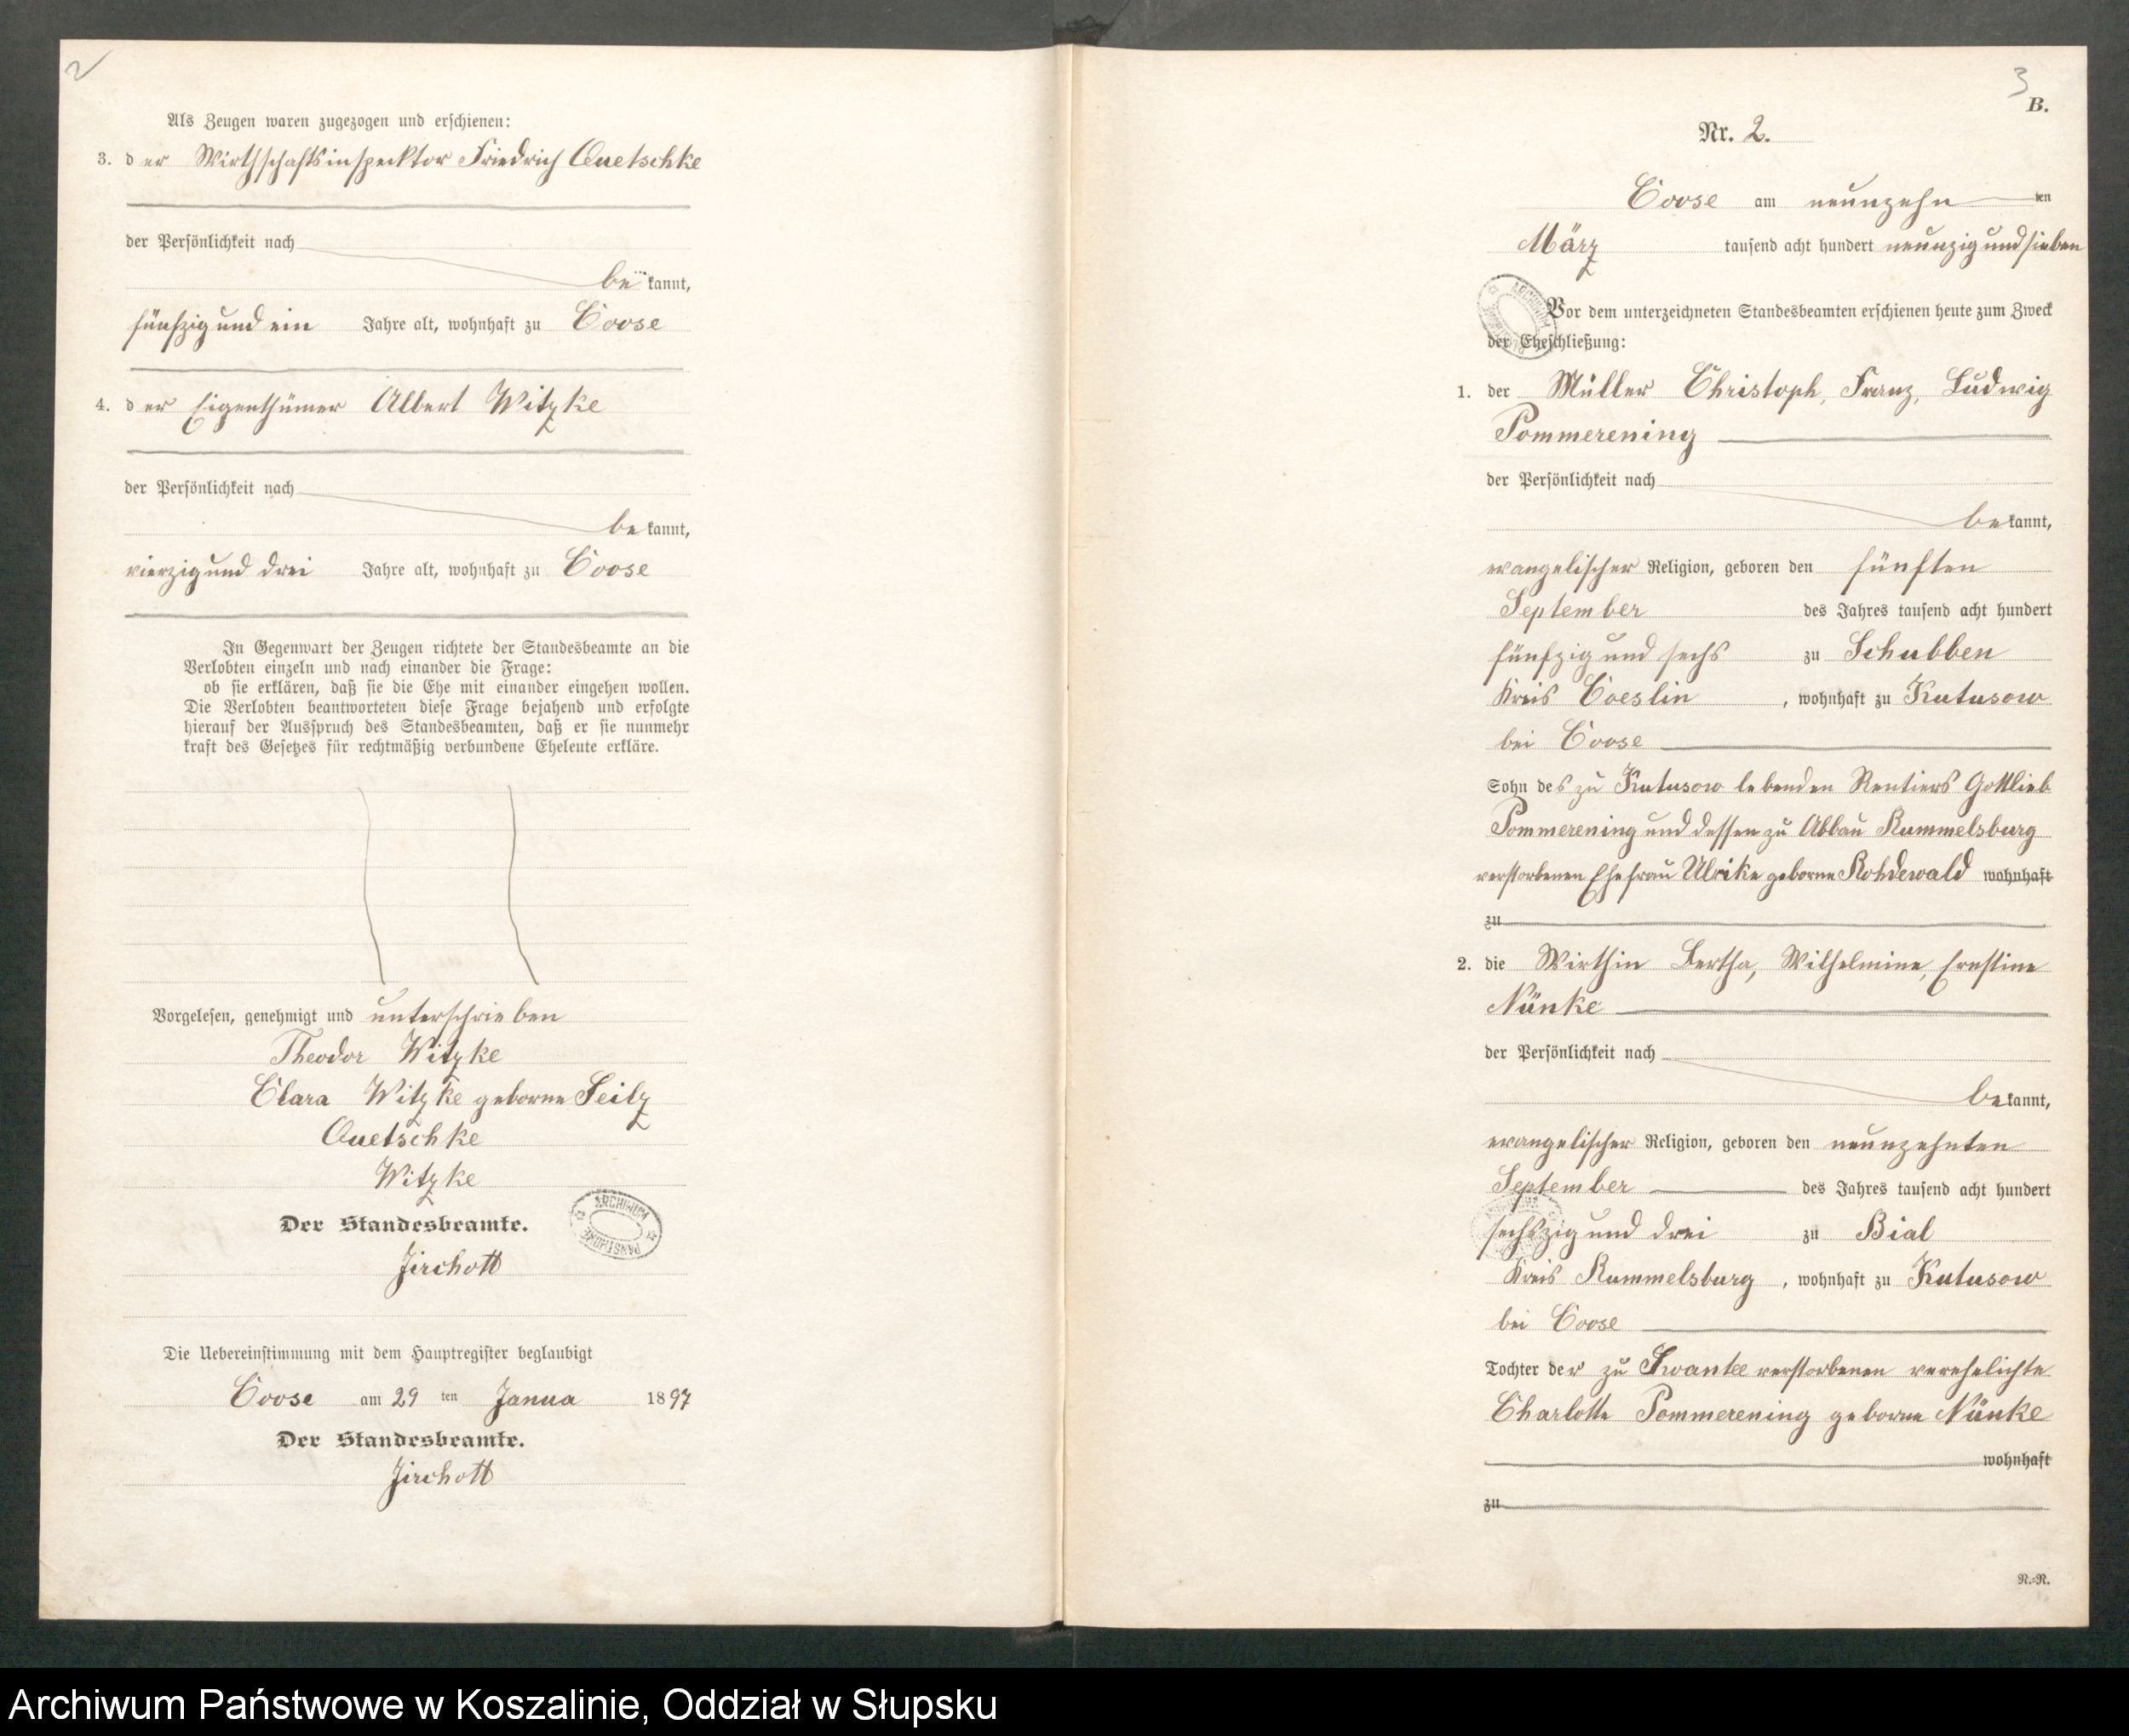 2
Als Zeugen waren zugezogen und erschienen:
3. der Wirthschaftsinspecktor Friedrich Quetschke
der Persönlichkeit nach
bekannt,
fünfzig und ein Jahre alt, wohnhaft zu Coose
4. der Eigenthümer Albert Witzke
der Persönlichkeit nach
bekannt,
vierzig und drei Jahre alt, wohnhaft zu Coose
In Gegenwart der Zeugen richtete der Standesbeamte an die
Verlobten einzeln und nach einander die Frage:
ob sie erklären, daß sie die Ehe mit einander eingehen wollen.
Die Verlobten beantworteten diese Frage bejahend und erfolgte
hierauf der Ausspruch des Standesbeamten, daß er sie nunmehr
kraft des Gesetzes für rechtmäßig verbundene Eheleute erkläre.
Vorgelesen, genehmigt und unterschrieben
Theodor Witzke
Clara Witzke geborne Seilz
Quetschke
Witzke
Der Standesbeamte.
ARCHIWUM PAŃSTWOWE
Jirchott
Die Uebereinstimmung mit dem Hauptregister beglaubigt
Coose am 29 ten Janua 1897
Der Standesbeamte.
Jirchott
3
B.
Nr. 2.
Coose am neunzehn ten
März tausend acht hundert neunzig und sieben
Vor dem unterzeichneten Standesbeamten erschienen heute zum Zweck
der Eheschließung:
1. der Müller Christoph, Franz, Ludwig
Pommerening
der Persönlichkeit nach
bekannt,
evangelischer Religion, geboren den fünften
September des Jahres tausend acht hundert
fünfzig und sechs zu Schubben
Kreis Coeslin, wohnhaft zu Kutusow
bei Coose
Sohn des zu Kutusow lebenden Rentiers Gottlieb
Pommerening und dessen zu Abbau Rummelsburg
verstorbenen Ehefrau Ulrike geborne Rohdewald wohnhaft
zu
2. die Wirthin Bertha, Wilhelmine, Ernstine
Nünke
der Persönlichkeit nach
bekannt,
evangelischer Religion, geboren den neunzehnten
September des Jahres tausend acht hundert
sechszig und drei zu Bial
Kreis Rummelsburg, wohnhaft zu Kutusow
bei Coose
Tochter der zu Swantee verstorbenen verehelichte
Charlotte Pommerening geborne Nünke
wohnhaft
zu
N.=N.
Archiwum Państwowe w Koszalinie, Oddział w Słupsku